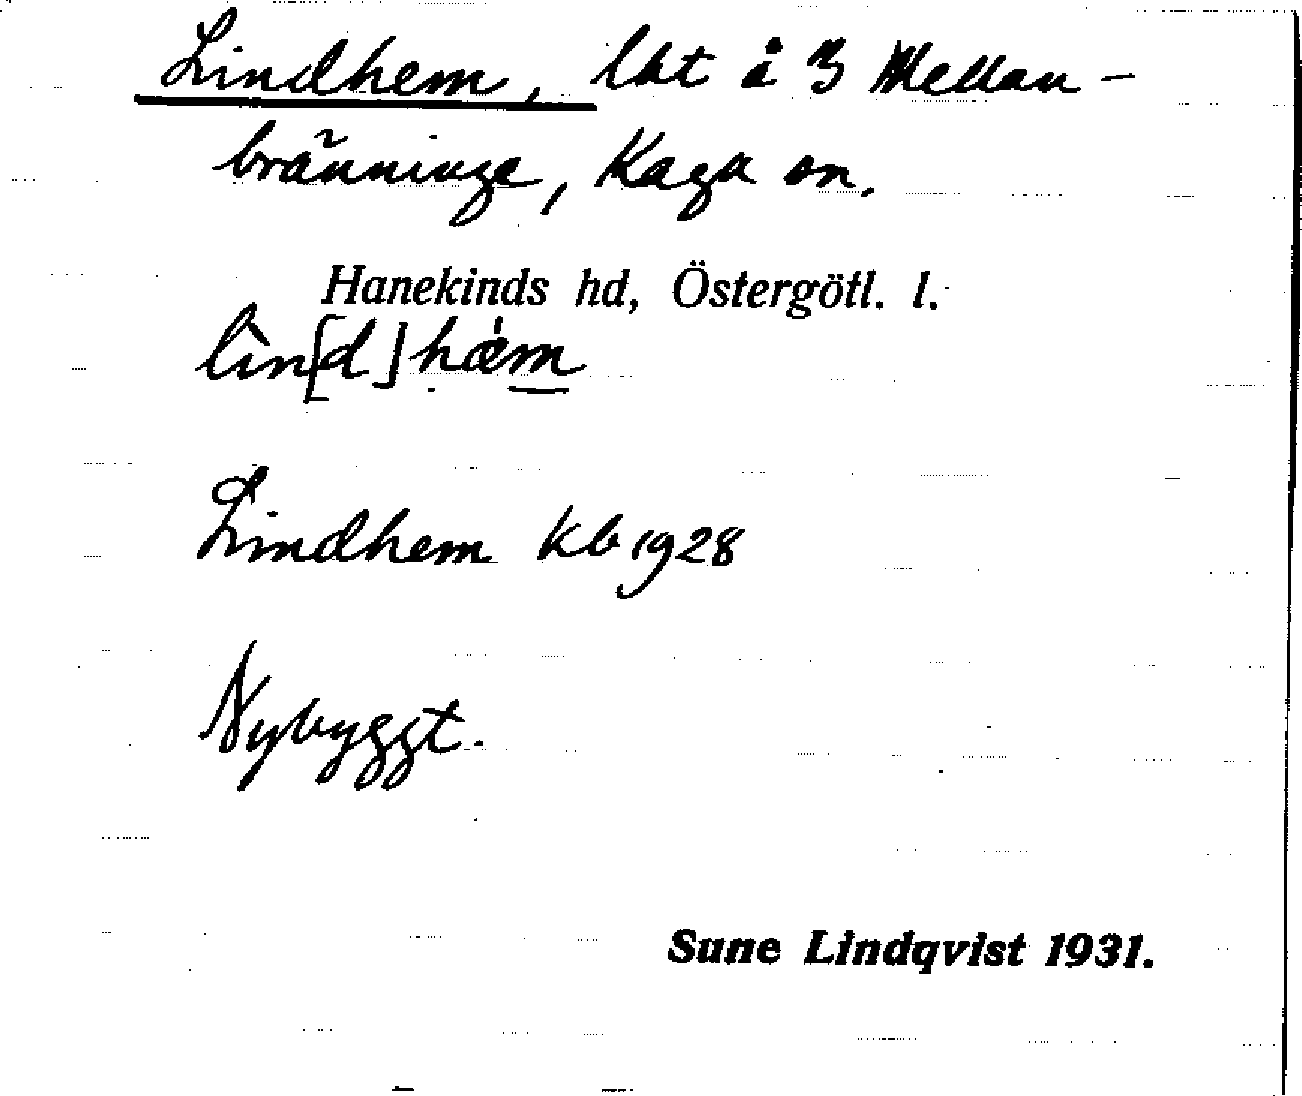 Lindhem, lht å 3 Mellan-
bränninge, Kaga sn.
Hanekinds hd, Östergötl. l.
lìn[d]hæ̀m
Lindhem Kb 1928
Nybyggt.
Sune Lindqvist 1931.